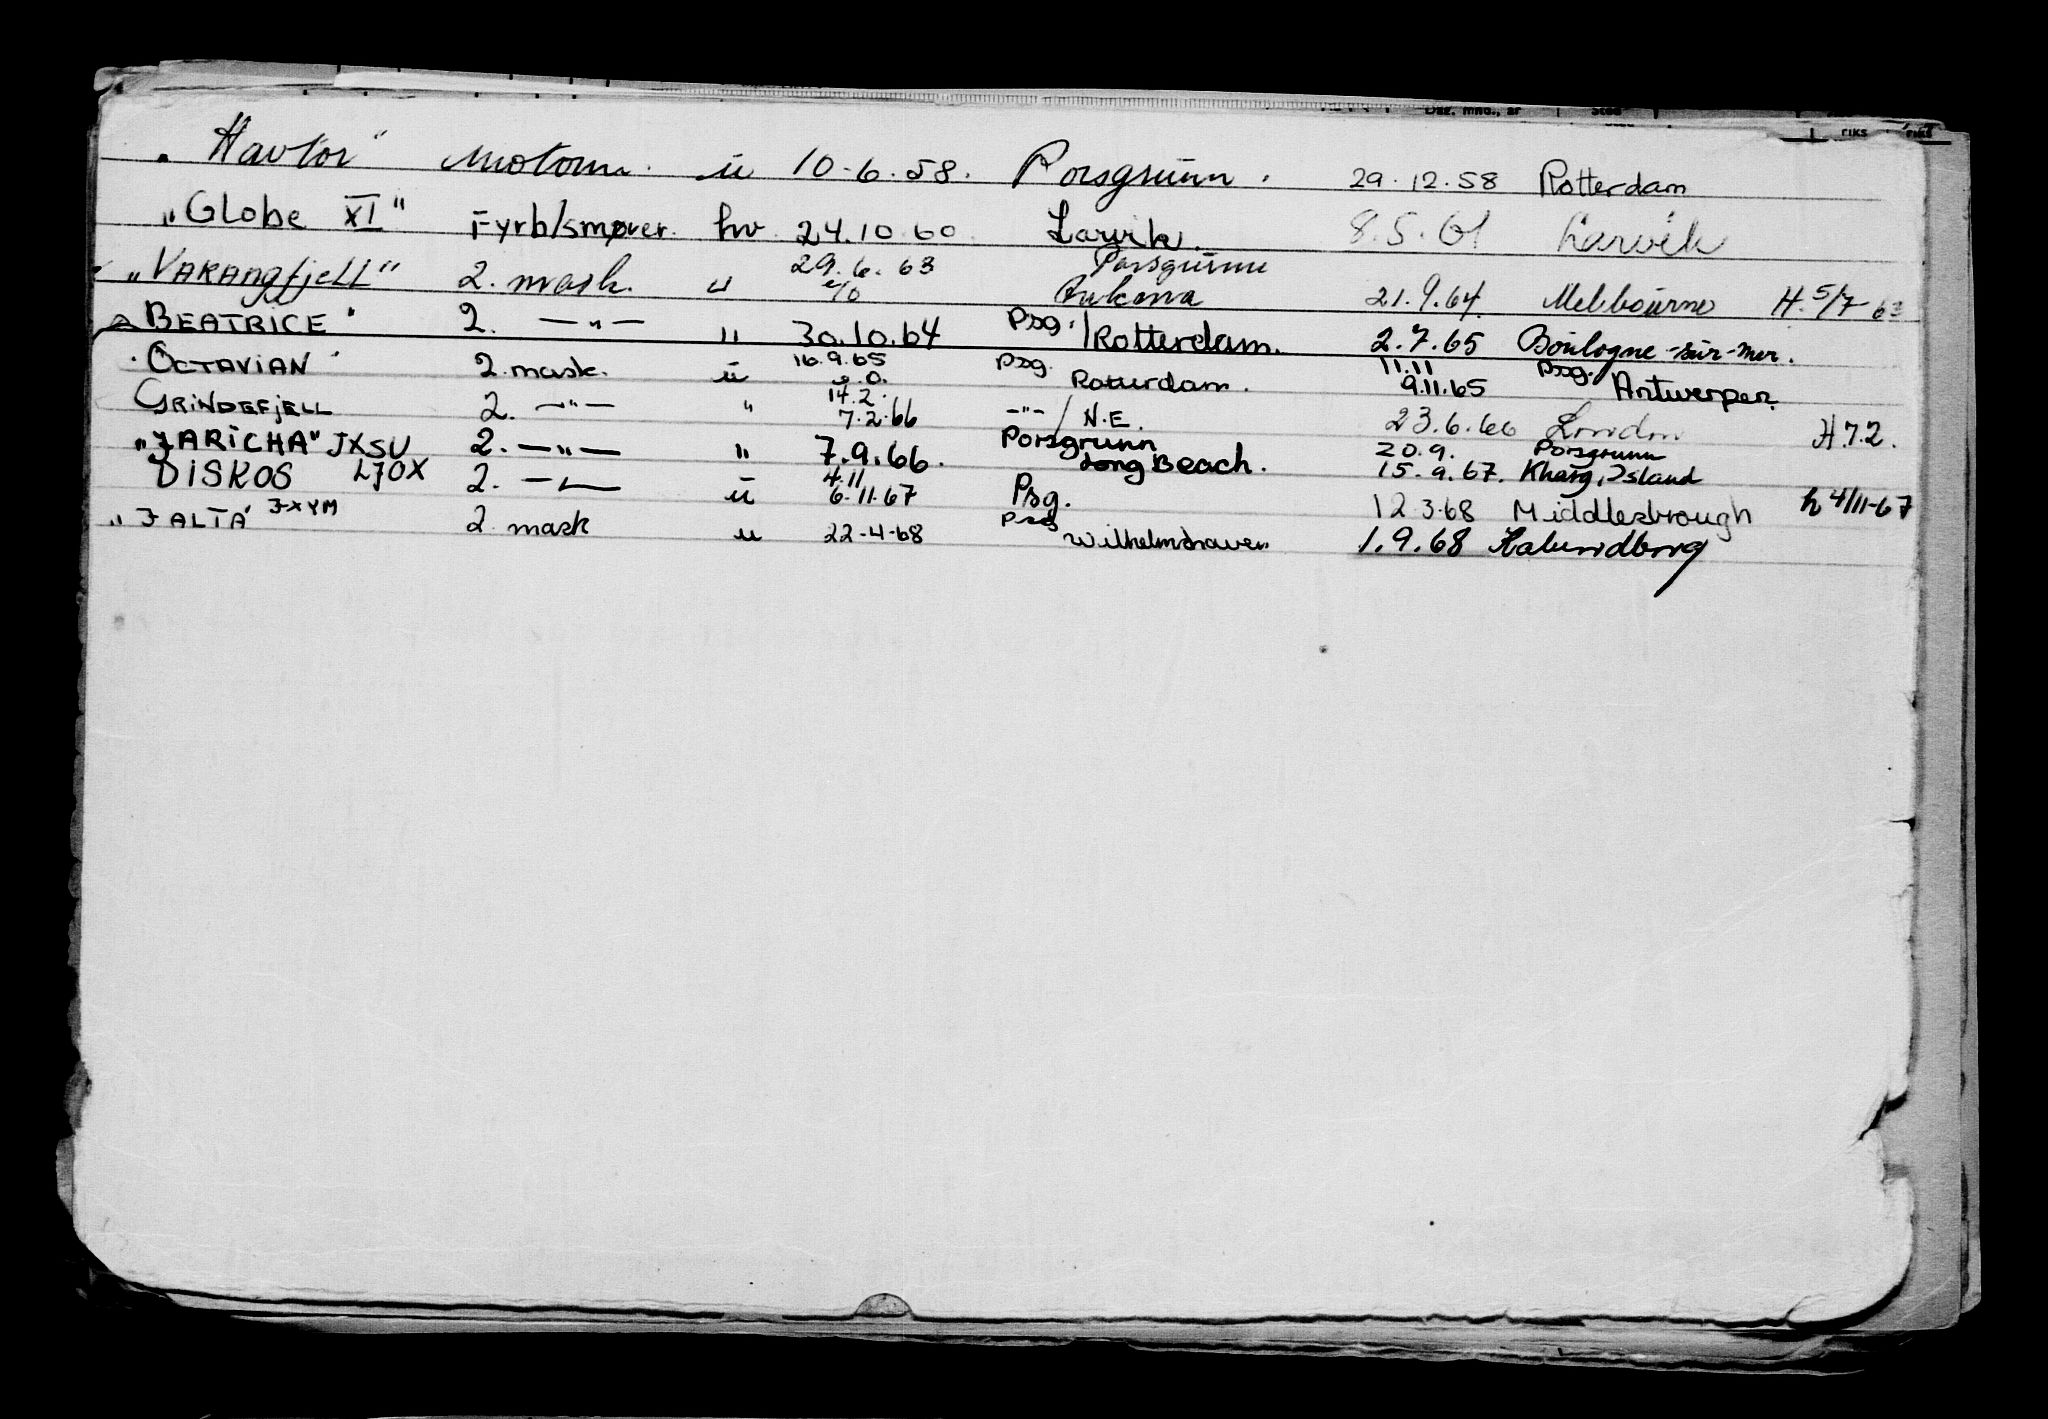 Dag, mnd., år Sted
riks riks
"Havtor" Motorm. u 10-6.58. Porsgrunn. 29.12.58 Rotterdam
"Globe XI" Fyrb/smører. hv. 24.10.60 Larvik. 8.5.61 Larvik
29.6.63 Porsgrunn
"VARANGfjELL" 2. mask. u 21.9.64. Melbourne H. 5/7-63
BEATRICE" 2. —"— u 30.10.64 Psg./Rotterdam. 2.7.65 Boulogne-sur-mer.
16.9.65 Psg. 11.11 Psg.
"OCTAVIAN" 2. mask. u Rotterdam. 9.11.65 Antwerpen
14.2.
GRINDEFJELL 2. —"— " 7.2.66 —"—/N.E. 23.6.66 London H 7.2.
Porsgrunn 20.9. Porsgrunn
"JARICHA" JXSU 2. —"— " 7.9.66. Long Beach. 15.9.67. Kharg, Island
4.11
DISKOS LJOX 2. —"— u 6.11.67 Psg. 12.3.68 Middlesbrough h 4/11-67
Psg
"JALTA" JXYM 2 mask u 22-4-68 Wilhelmshaven 1.9.68 Kalundborg